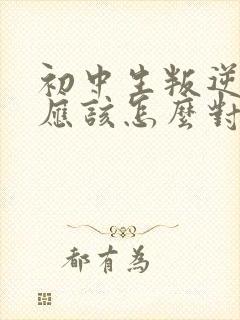 初中生叛逆
應該怎麼對
都有為